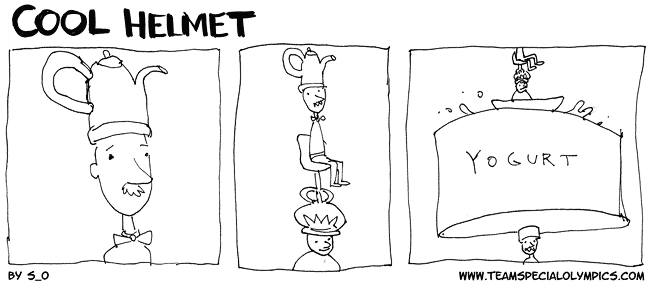 COOL HELMET
YOGURT
BY S_O
WWW.TEAMSPECIALOLYMPICS.COM